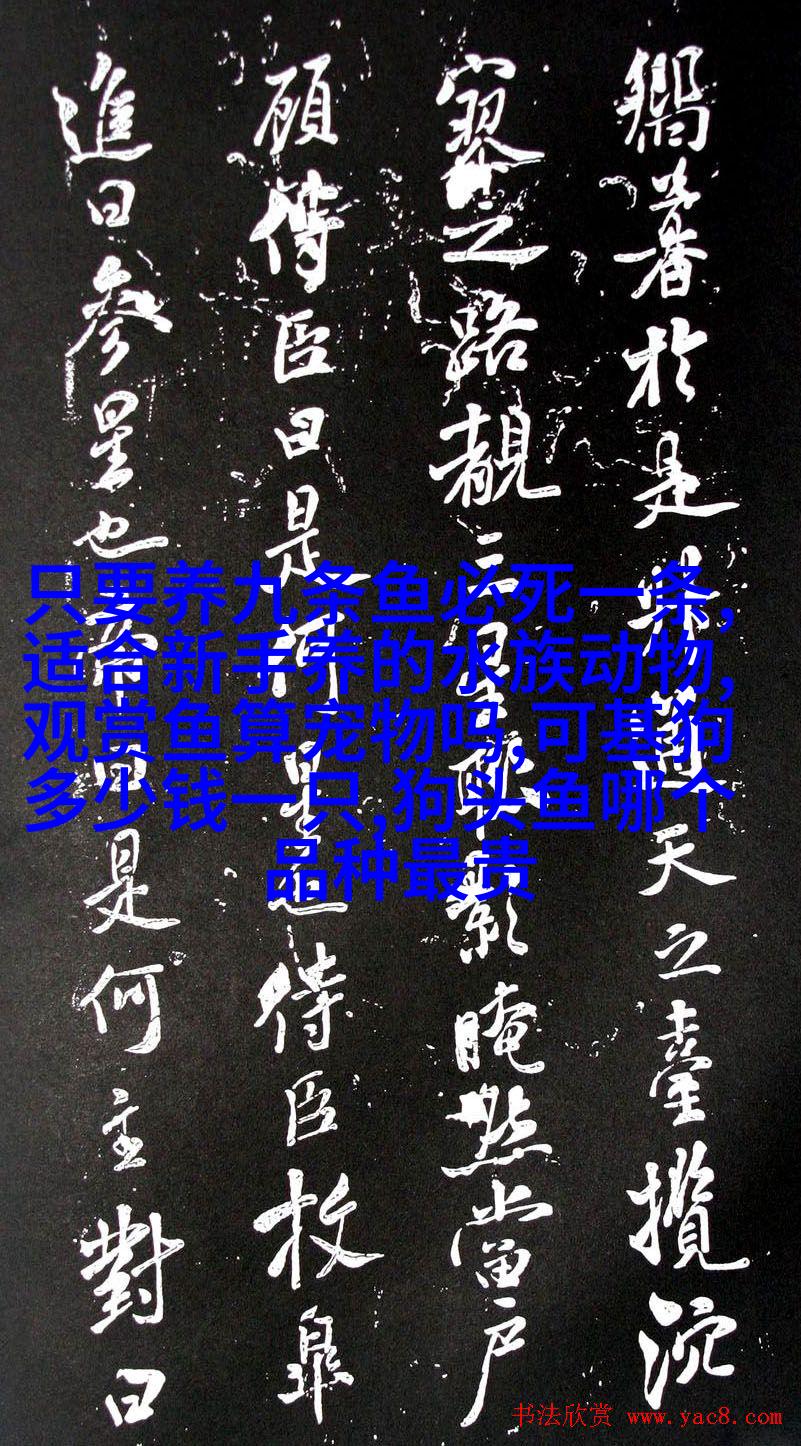 鄉暑於是
天之臺攬沉
寥之路覩二星
影晻點當户
顧侍臣曰是何星也侍臣枚皋
進曰參星也
曰是何主對曰
只要养九条鱼必死一条,
适合新手养的水族动物,
观赏鱼算宠物吗,可基狗
多少钱一只,狗头鱼哪个
品种最贵
书法欣赏 www.yac8.com